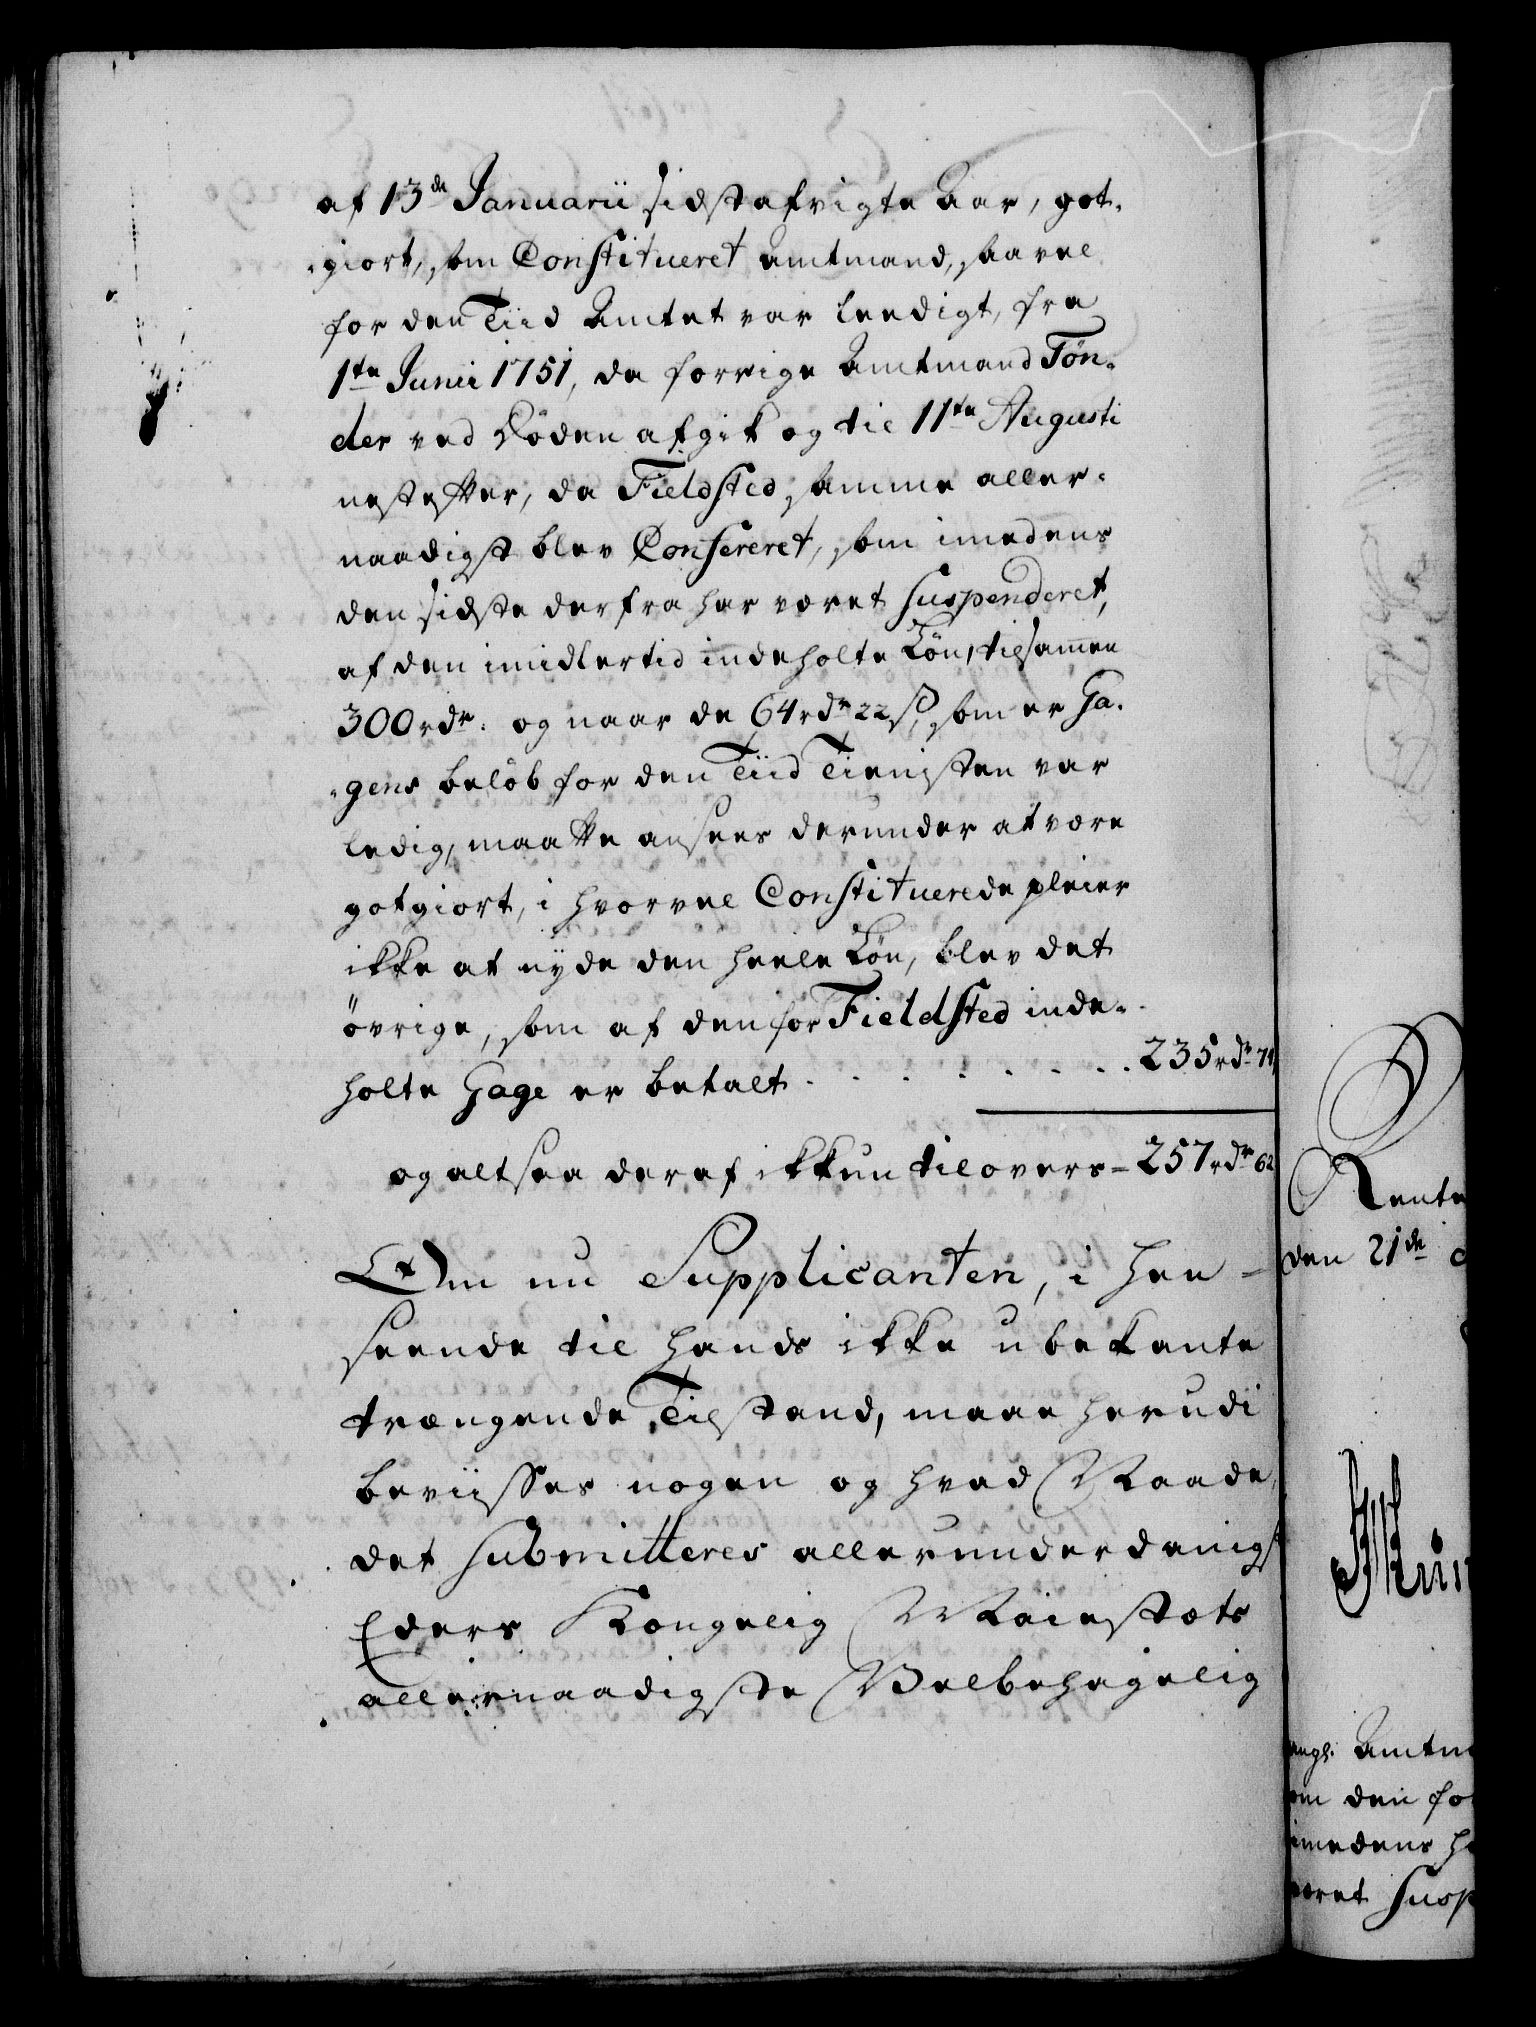 af 13de Januarii sidstafvigte Aar, got-
-giort, som Constitueret Amtmand, saavel
for den Tiid Amtet var leedigt, fra
1te Junii 1751, da forrige Amtmand Tøn-
der ved Døden afgik og til 11te Augusti
nestefter, da Fieldsted samme aller-
naadigst blev Confereret, som imedens
den sidste derfra har været suspenderet,
af den imidlertid indeholte Løn, tilsamen
300 rdr. og naar de 64 rdr 22 s, som er Ga-
-gens beløb for den Tiid Tienisten var
ledig, maatte ansees derunder at være
gotgiort, i hvorvel Constituerede pleier
ikke at nyde den heele Løn, blev det
øvrige, som af den for Fieldsted inde-
holte Gage er betalt . . . . . . . 235 rdr 74
og altsaa deraf ikkun tilovers - 257 rdr 62
Om nu Supplicanten, i hen-
seende til hands ikke ubekante
trængende Tilstand, maae herudi
beviisses nogen og hvad Naade,
det submitteres allerunderdanigst
Eders Kongelig Maiestæts
allernaadigste Velbehagelig
Rente
den 21de
Amtm
om den for
imedens ha
været Susp